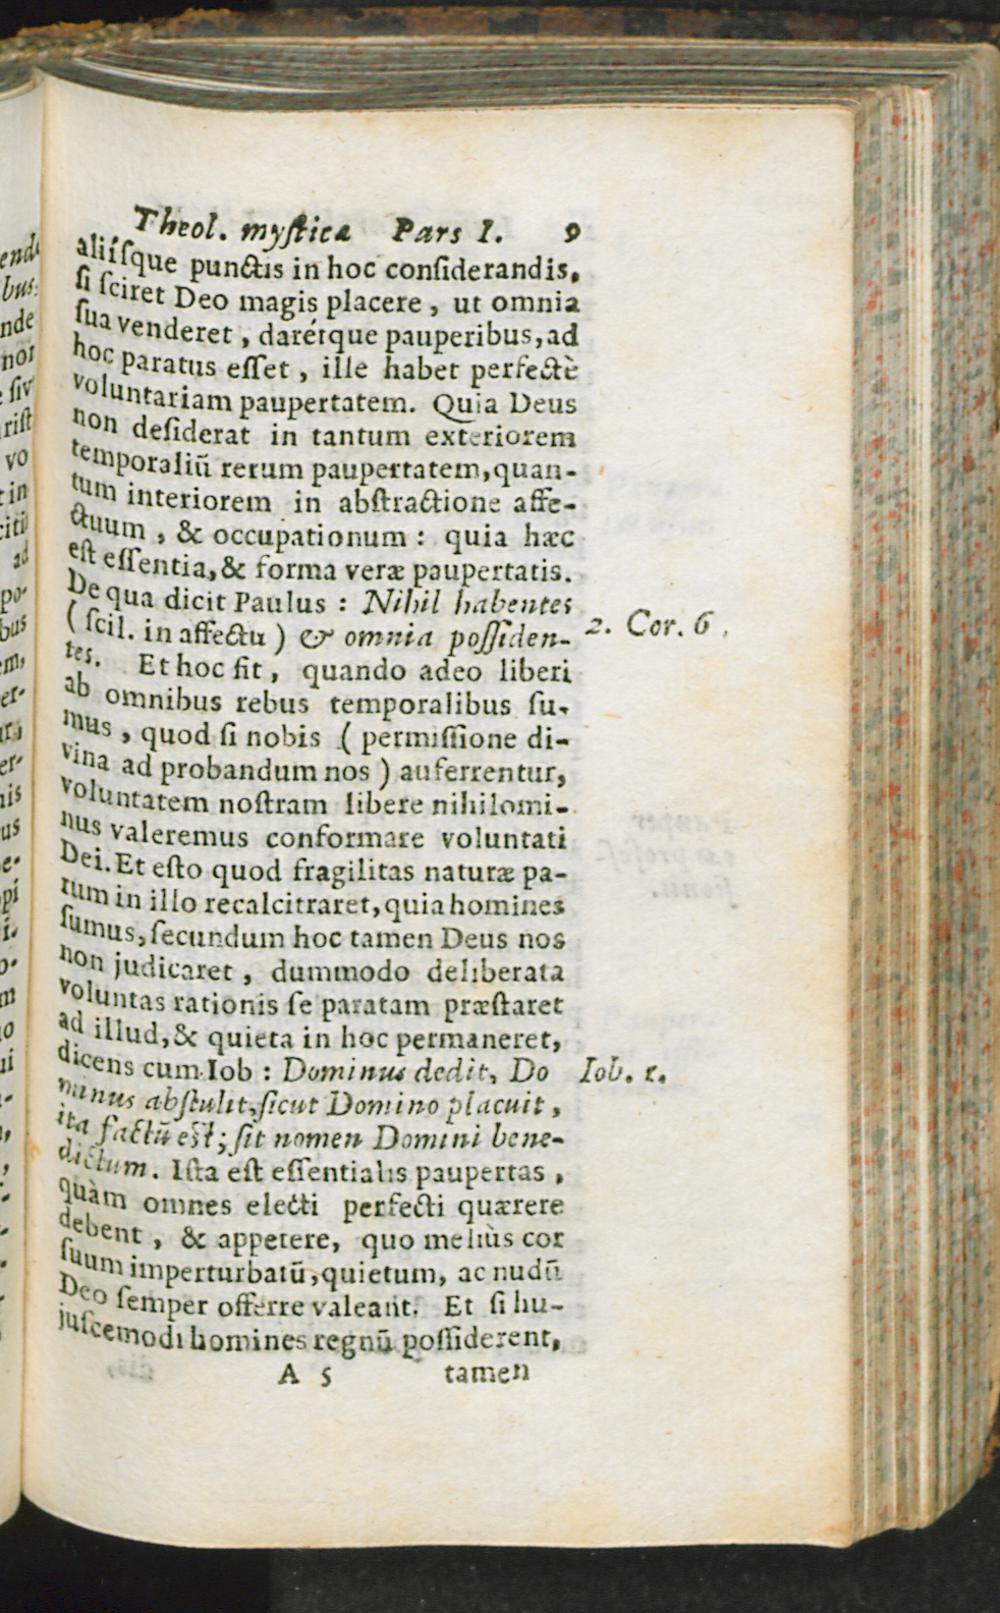 Theol. mysticæ Pars I. 9
aliísque punctis in hoc considerandis,
si sciret Deo magis placere, ut omnia
sua venderet, darétque pauperibus, ad
hoc paratus esset, ille habet perfectè
voluntariam paupertatem. Quia Deus
non desiderat in tantum exteriorem
temporaliū rerum paupertatem, quan-
tum interiorem in abstractione affe-
ctuum, & occupationum: quia hæc
est essentia, & forma veræ paupertatis.
De qua dicit Paulus: Nihil habentes
(scil. in affectu) & omnia possiden-
2. Cor. 6.
tes. Et hoc fit, quando adeo liberi
ab omnibus rebus temporalibus su-
mus, quod si nobis (permissione di-
vina ad probandum nos) auferrentur,
voluntatem nostram libere nihilomi-
nus valeremus conformare voluntati
Dei. Et esto quod fragilitas naturæ pa-
rum in illo recalcitraret, quia homines
sumus, secundum hoc tamen Deus nos
non judicaret, dummodo deliberata
voluntas rationis se paratam præstaret
ad illud, & quieta in hoc permaneret,
dicens cum Iob: Dominus dedit, Do
Iob. 1.
minus abstulit, sicut Domino placuit,
ita factū est; sit nomen Domini bene-
dictum. Ista est essentialis paupertas,
quàm omnes electi perfecti quærere
debent, & appetere, quo meliùs cor
suum imperturbatū, quietum, ac nudū
Deo semper offerre valeant. Et si hu-
juscemodi homines regnū possiderent,
A 5 tamen